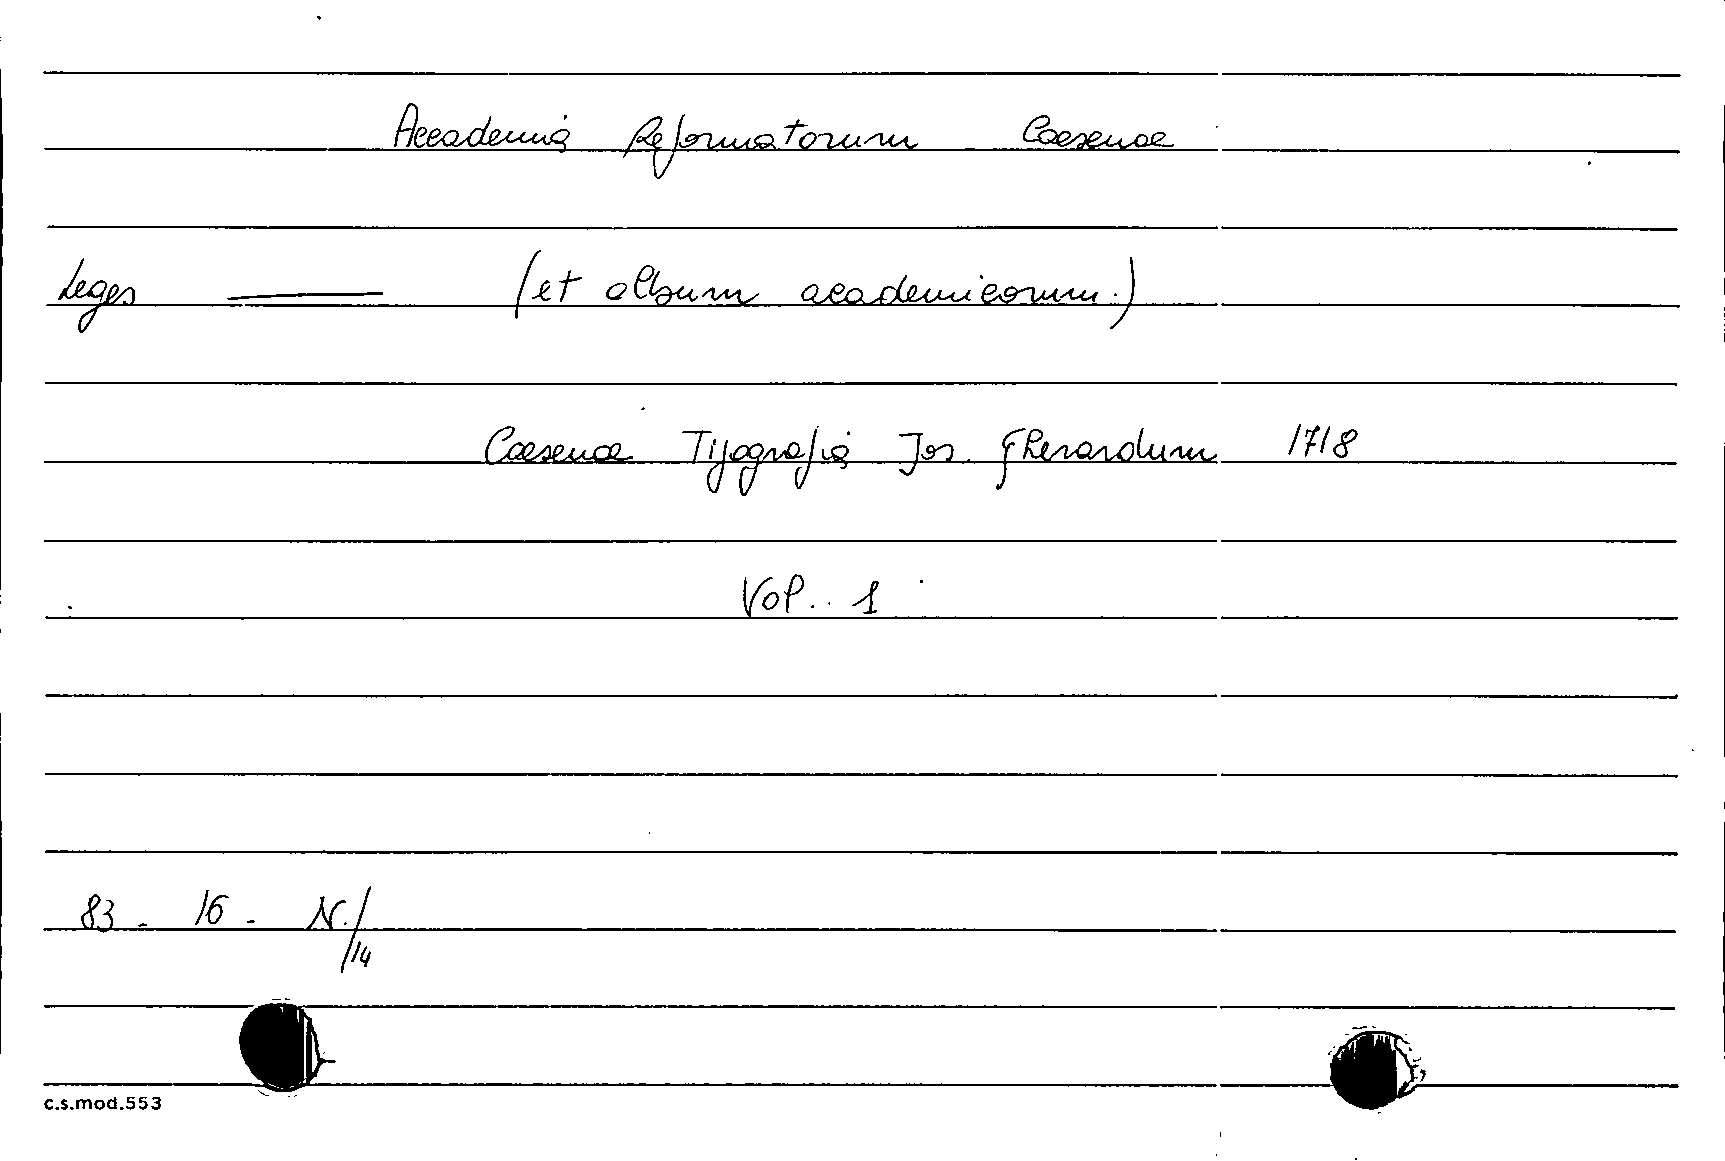 Accademia Reformatorum Caesenae
Leges ——— (et album academicorum.)
Caesenae Tipografia Jos. Gherardum 1718
Vol. 1
83 - 16 - N./14
c.s.mod.553